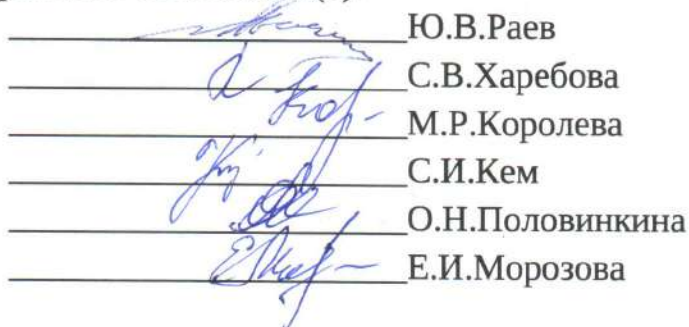 Ю.В.Раев
С.В.Харебова
М.Р.Королева
С.И.Кем
О.Н.Половинкина
Е.И.Морозова